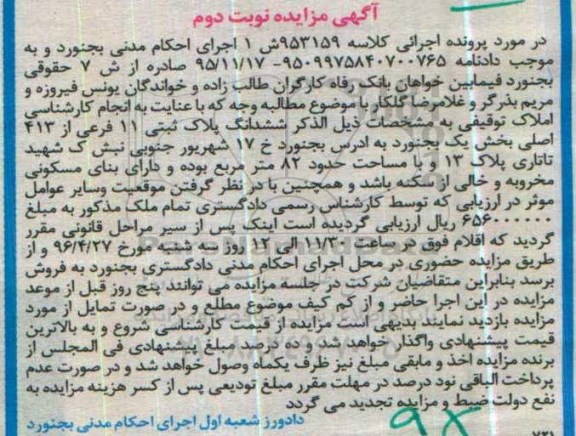 آگهی مزایده نوبت دوم
در مورد پرونده اجرائی کلاسه ۹۵۳۱۵۹ش ۱ اجرای احکام مدنی بجنورد و به
موجب دادنامه ۹۵۰۹۹۷۵۸۴۰۷۰۰۷۶۵- ۹۵/۱۱/۱۷ صادره از ش ۷ حقوقی
بجنورد فیمابین خواهان بانک رفاه کارگران طالب زاده و خواندگان یونس فیروزه و
مریم بذرگر و غلامرضا گلکار با موضوع مطالبه وجه که با عنایت به انجام کارشناسی
املاک توقیفی به مشخصات ذیل الذکر ششدانگ پلاک ثبتی ۱۱ فرعی از ۴۱۳
اصلی بخش یک بجنورد به ادرس بجنورد خ ۱۷ شهریور جنوبی نبش ک شهید
تاتاری پلاک ۱۱۳ با مساحت حدود ۸۲ متر مربع بوده و دارای بنای مسکونی
مخروبه و خالی از سکنه باشد و همچنین با در نظر گرفتن موقعیت وسایر عوامل
موثر در ارزیابی که توسط کارشناس رسمی دادگستری تمام ملک مذکور به مبلغ
۶۵۶۰۰۰۰۰۰ ریال ارزیابی گردیده است اینک پس از سیر مراحل قانونی مقرر
گردید که اقلام فوق در ساعت ۱۱/۳۰ الی ۱۲ روز سه شنبه مورخ ۹۶/۴/۲۷ و از
طریق مزایده حضوری در محل اجرای احکام مدنی دادگستری بجنورد به فروش
برسد بنابراین متقاضیان شرکت در جلسه مزایده می توانند پنج روز قبل از موعد
مزایده در این اجرا حاضر و از کم کیف موضوع مطلع و در صورت تمایل از مورد
مزایده بازدید نمایند بدیهی است مزایده از قیمت کارشناسی شروع و به بالاترین
قیمت پیشنهادی واگذار خواهد شد و ده درصد مبلغ پیشنهادی فی المجلس از
برنده مزایده اخذ و مابقی مبلغ نیز ظرف یکماه وصول خواهد شد و در صورت عدم
پرداخت الباقی نود درصد در مهلت مقرر مبلغ تودیعی پس از کسر هزینه مزایده به
نفع دولت ضبط و مزایده تجدید می گردد
دادورز شعبه اول اجرای احکام مدنی بجنورد